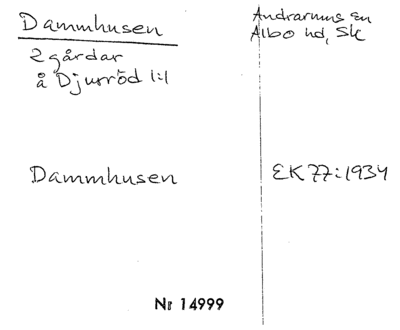 Dammhusen
2 gårdar
å Djurröd 1:1
Andrarums sn
Albo hd, Sk
Dammhusen
EK 77:1934
Nr 14999